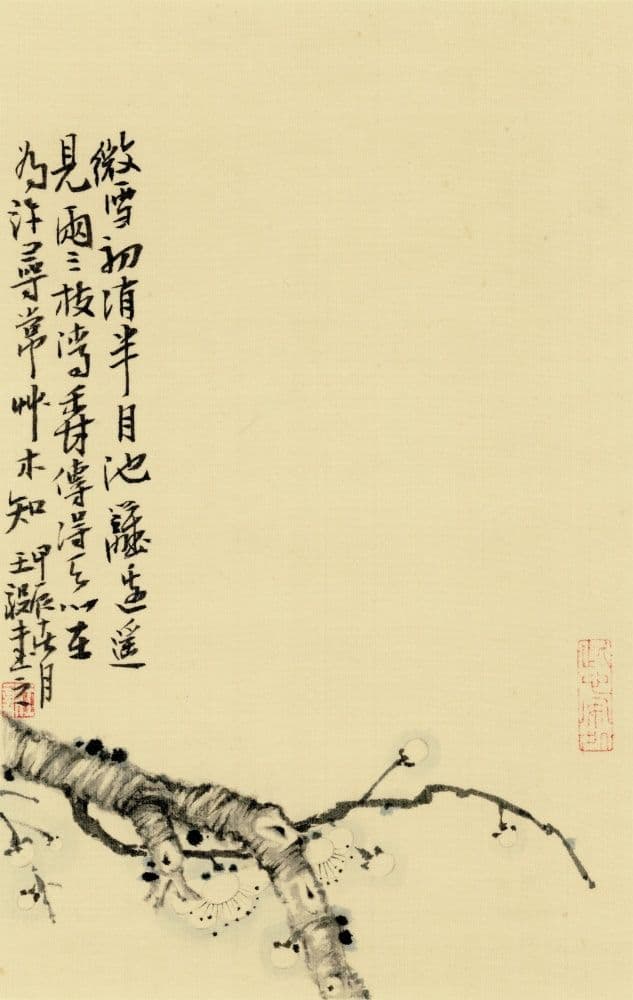 微雪初消半月池籬邊遥
見兩三枝清香傳得天心在
為許尋常艸木知
甲辰春月
王毅畫之